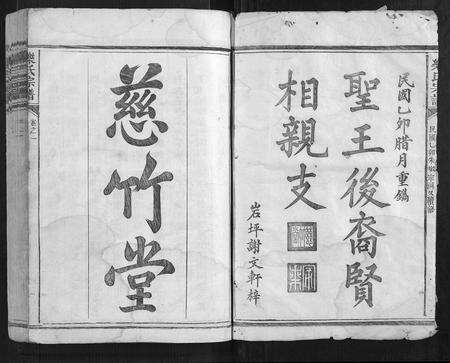 民國乙卯腊月重鐫
聖王後裔賢
相親支
岩坪謝文軒梓
慈竹堂
氏宗譜
卷之一